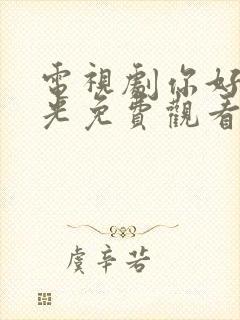 電視劇你好
光免費觀看
虞辛若